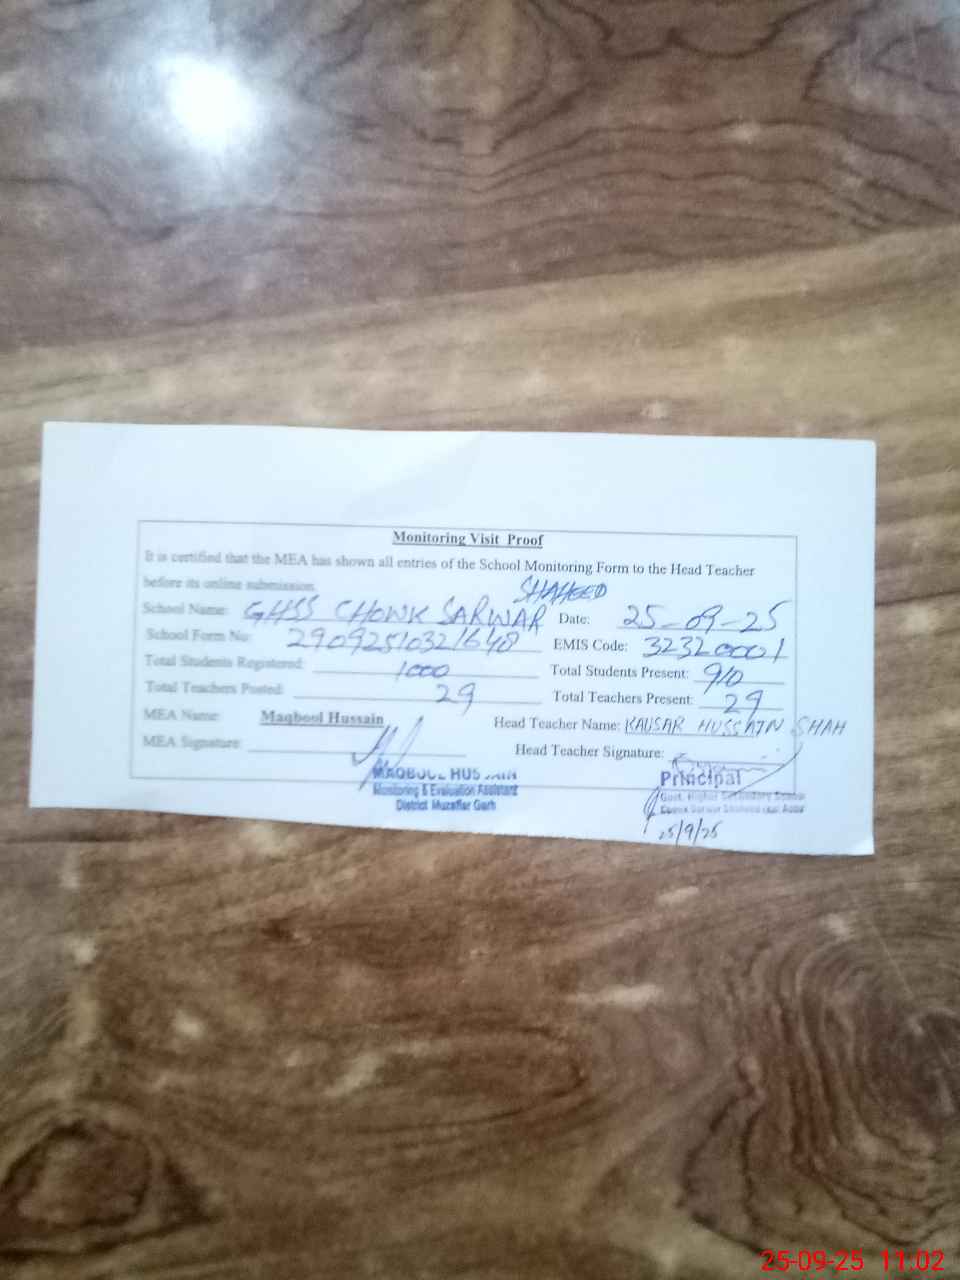 Monitoring Visit Proof
It is certified that the MEA has shown all entries of the School Monitoring Form to the Head Teacher
before its online submission.
SHAHEED
School Name: GHSS CHOWK SARWAR Date: 25-09-25
School Form No: 29092510321648 EMIS Code: 32320001
Total Students Registered: 1000 Total Students Present: 910
Total Teachers Posted: 29 Total Teachers Present: 29
MEA Name: Maqbool Hussain Head Teacher Name: KAUSAR HUSSAIN SHAH
MEA Signature: Head Teacher Signature:
MAQBOOL HUSSAIN
Monitoring & Evaluation Assistant
District Muzaffar Garh
Principal
Govt. Higher Secondary School
Chowk Sarwar Shaheed
25/9/25
25-09-25 11:02